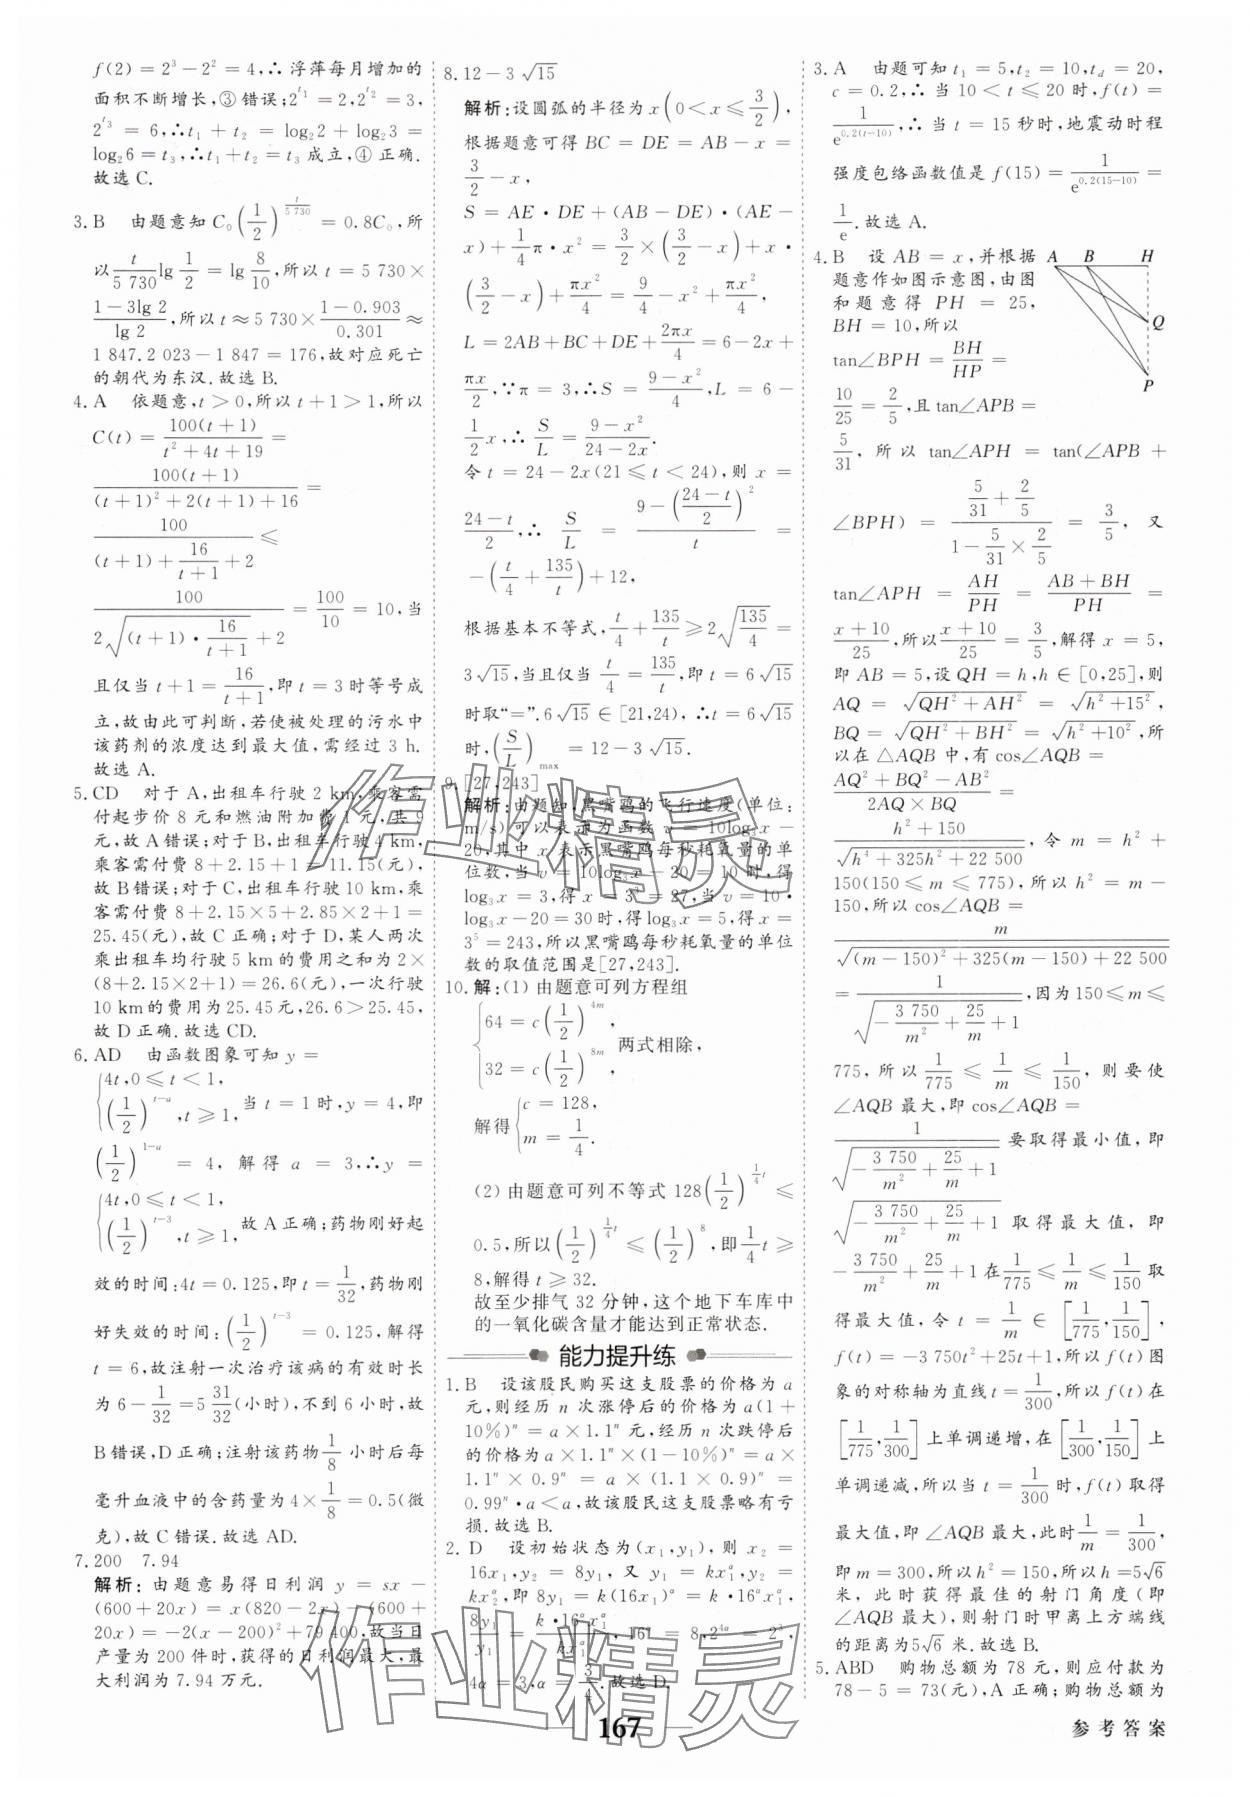 f(2)=2³-2²=4,∴浮萍每月增加的
面积不断增长,③错误;2^{t₁}=2,2^{t₂}=3,
2^{t₃}=6,∴t₁+t₂=log₂2+log₂3=
log₂6=t₃,∴t₁+t₂=t₃成立,④正确.
故选C.
3.B 由题意知C₀(1/2)^{t/5 730}=0.8C₀,所
以t/5 730 lg 1/2=lg 8/10,所以t=5 730×
(1-3lg 2)/lg 2,所以t≈5 730×(1-0.903)/0.301≈
1 847.2 023-1 847=176,故对应死亡
的朝代为东汉.故选B.
4.A 依题意,t>0,所以t+1>1,所以
C(t)=100(t+1)/(t²+4t+19)=
100(t+1)/((t+1)²+2(t+1)+16)=
100/((t+1)+16/(t+1)+2)≤
100/(2√((t+1)·16/(t+1))+2)=100/10=10,当
且仅当t+1=16/(t+1),即t=3时等号成
立,故由此可判断,若使被处理的污水中
该药剂的浓度达到最大值,需经过3 h.
故选A.
5.CD 对于A,出租车行驶2 km,乘客需
付起步价8元和燃油附加费1元,共9
元,故A错误;对于B,出租车行驶4 km,
乘客需付费8+2.15+1=11.15(元),
故B错误;对于C,出租车行驶10 km,乘
客需付费8+2.15×5+2.85×2+1=
25.45(元),故C正确;对于D,某人两次
乘出租车均行驶5 km的费用之和为2×
(8+2.15×2+1)=26.6(元),一次行驶
10 km的费用为25.45元,26.6>25.45,
故D正确.故选CD.
6.AD 由函数图象可知y=
{4t,0≤t<1,
(1/2)^{t-a},t≥1,当t=1时,y=4,即
(1/2)^{1-a}=4,解得a=3,∴y=
{4t,0≤t<1,
(1/2)^{t-3},t≥1,故A正确;药物刚好起
效的时间:4t=0.125,即t=1/32,药物刚
好失效的时间:(1/2)^{t-3}=0.125,解得
t=6,故注射一次治疗该病的有效时长
为6-1/32=5 31/32(小时),不到6小时,故
B错误,D正确;注射该药物1/8小时后每
毫升血液中的含药量为4×1/8=0.5(微
克),故C错误.故选AD.
7.200 7.94
解析:由题意易得日利润y=sx-
(600+20x)=x(820-2x)-(600+
20x)=-2(x-200)²+79 400,故当日
产量为200件时,获得的日利润最大,最
大利润为7.94万元.
8.12-3√15
解析:设圆弧的半径为x(0<x≤3/2),
根据题意可得BC=DE=AB-x=
3/2-x,
S=AE·DE+(AB-DE)·(AE-
x)+1/4π·x²=3/2×(3/2-x)+x·
(3/2-x)+πx²/4=9/4-x²+πx²/4,
L=2AB+BC+DE+2πx/4=6-2x+
πx/2,∵π=3,∴S=(9-x²)/4,L=6-
1/2x,∴S/L=(9-x²)/(24-2x).
令t=24-2x(21≤t<24),则x=
(24-t)/2,∴S/L=(9-((24-t)/2)²)/t=
-(t/4+135/t)+12,
根据基本不等式,t/4+135/t≥2√(135/4)=
3√15,当且仅当t/4=135/t,即t=6√15
时取“=”.6√15∈[21,24),∴t=6√15
时,(S/L)max=12-3√15.
9.[27,243]
解析:由题知,黑嘴鸥的飞行速度(单位:
m/s)可以表示为函数v=10log₃x-
20,其中x表示黑嘴鸥每秒耗氧量的单
位数,当v=10log₃x-20=10时,得
log₃x=3,得x=3³=27,当v=10·
log₃x-20=30时,得log₃x=5,得x=
3⁵=243,所以黑嘴鸥每秒耗氧量的单位
数的取值范围是[27,243].
10.解:(1)由题意可列方程组
{64=c(1/2)^{4m},
32=c(1/2)^{8m},两式相除,
解得{c=128,
m=1/4.
(2)由题意可列不等式128(1/2)^{1/4 t}≤
0.5,所以(1/2)^{1/4 t}≤(1/2)⁸,即1/4t≥
8,解得t≥32.
故至少排气32分钟,这个地下车库中
的一氧化碳含量才能达到正常状态.
能力提升练
1.B 设该股民购买这支股票的价格为a
元,则经历n次涨停后的价格为a(1+
10%)ⁿ=a×1.1ⁿ元,经历n次跌停后
的价格为a×1.1ⁿ×(1-10%)ⁿ=a×
1.1ⁿ×0.9ⁿ=a×(1.1×0.9)ⁿ=
0.99ⁿ·a<a,故该股民这支股票略有亏
损.故选B.
2.D 设初始状态为(x₁,y₁),则x₂=
16x₁,y₂=8y₁,又y₁=kx₁^α,y₂=
kx₂^α,即8y₁=k(16x₁)^α=k·16^αx₁^α,
8y₁/y₁=k·16^αx₁^α/kx₁^α,∴16^α=8,2^{4α}=2³,
4α=3,α=3/4.故选D.
3.A 由题可知t₁=5,t₂=10,t_d=20,
c=0.2,∴当10<t≤20时,f(t)=
1/e^{0.2(t-10)},∴当t=15秒时,地震动时程
强度包络函数值是f(15)=1/e^{0.2(15-10)}=
1/e.故选A.
4.B 设AB=x,并根据
题意作如图示意图,由图
和题意得PH=25,
BH=10,所以
A B H
Q
P
tan∠BPH=BH/HP=
10/25=2/5,且tan∠APB=
5/31,所以tan∠APH=tan(∠APB+
∠BPH)=(5/31+2/5)/(1-5/31×2/5)=3/5,又
tan∠APH=AH/PH=(AB+BH)/PH=
(x+10)/25,所以(x+10)/25=3/5,解得x=5,
即AB=5,设QH=h,h∈[0,25],则
AQ=√(QH²+AH²)=√(h²+15²),
BQ=√(QH²+BH²)=√(h²+10²),所
以在△AQB中,有cos∠AQB=
(AQ²+BQ²-AB²)/(2AQ×BQ)=
(h²+150)/√(h⁴+325h²+22 500),令m=h²+
150(150≤m≤775),所以h²=m-
150,所以cos∠AQB=
m/√((m-150)²+325(m-150)+22 500)
=1/√(-3 750/m²+25/m+1),因为150≤m≤
775,所以1/775≤1/m≤1/150,则要使
∠AQB最大,即cos∠AQB=
1/√(-3 750/m²+25/m+1)要取得最小值,即
√(-3 750/m²+25/m+1)取得最大值,即
-3 750/m²+25/m+1在1/775≤1/m≤1/150取
得最大值,令t=1/m∈[1/775,1/150],
f(t)=-3 750t²+25t+1,所以f(t)图
象的对称轴为直线t=1/300,所以f(t)在
[1/775,1/300]上单调递增,在[1/300,1/150]上
单调递减,所以当t=1/300时,f(t)取得
最大值,即∠AQB最大,此时1/m=1/300,
即m=300,所以h²=150,所以h=5√6
米,此时获得最佳的射门角度(即
∠AQB最大),则射门时甲离上方端线
的距离为5√6米.故选B.
5.ABD 购物总额为78元,则应付款为
78-5=73(元),A正确;购物总额为
167
参考答案
作业精灵
作业精灵